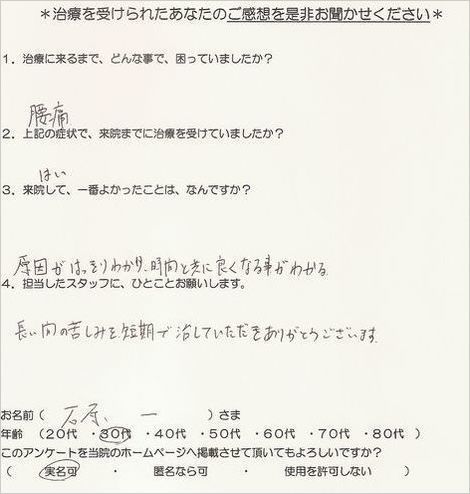 ＊治療を受けられたあなたのご感想を是非お聞かせください＊
1．治療に来るまで、どんな事で、困っていましたか？
腰痛
2．上記の症状で、来院までに治療を受けていましたか？
はい
3．来院して、一番よかったことは、なんですか？
原因がはっきりわかり、時間と共に良くなる事がわかる
4．担当したスタッフに、ひとことお願いします。
長い間の苦しみを短期で治していただきありがとうございます。
お名前（ 石原 一 ）さま
年齢 （20代 ・30代 ・40代 ・50代 ・60代 ・70代 ・80代 ）
このアンケートを当院のホームページへ掲載させて頂いてもよろしいですか？
（ 実名可 ・ 匿名なら可 ・ 使用を許可しない ）